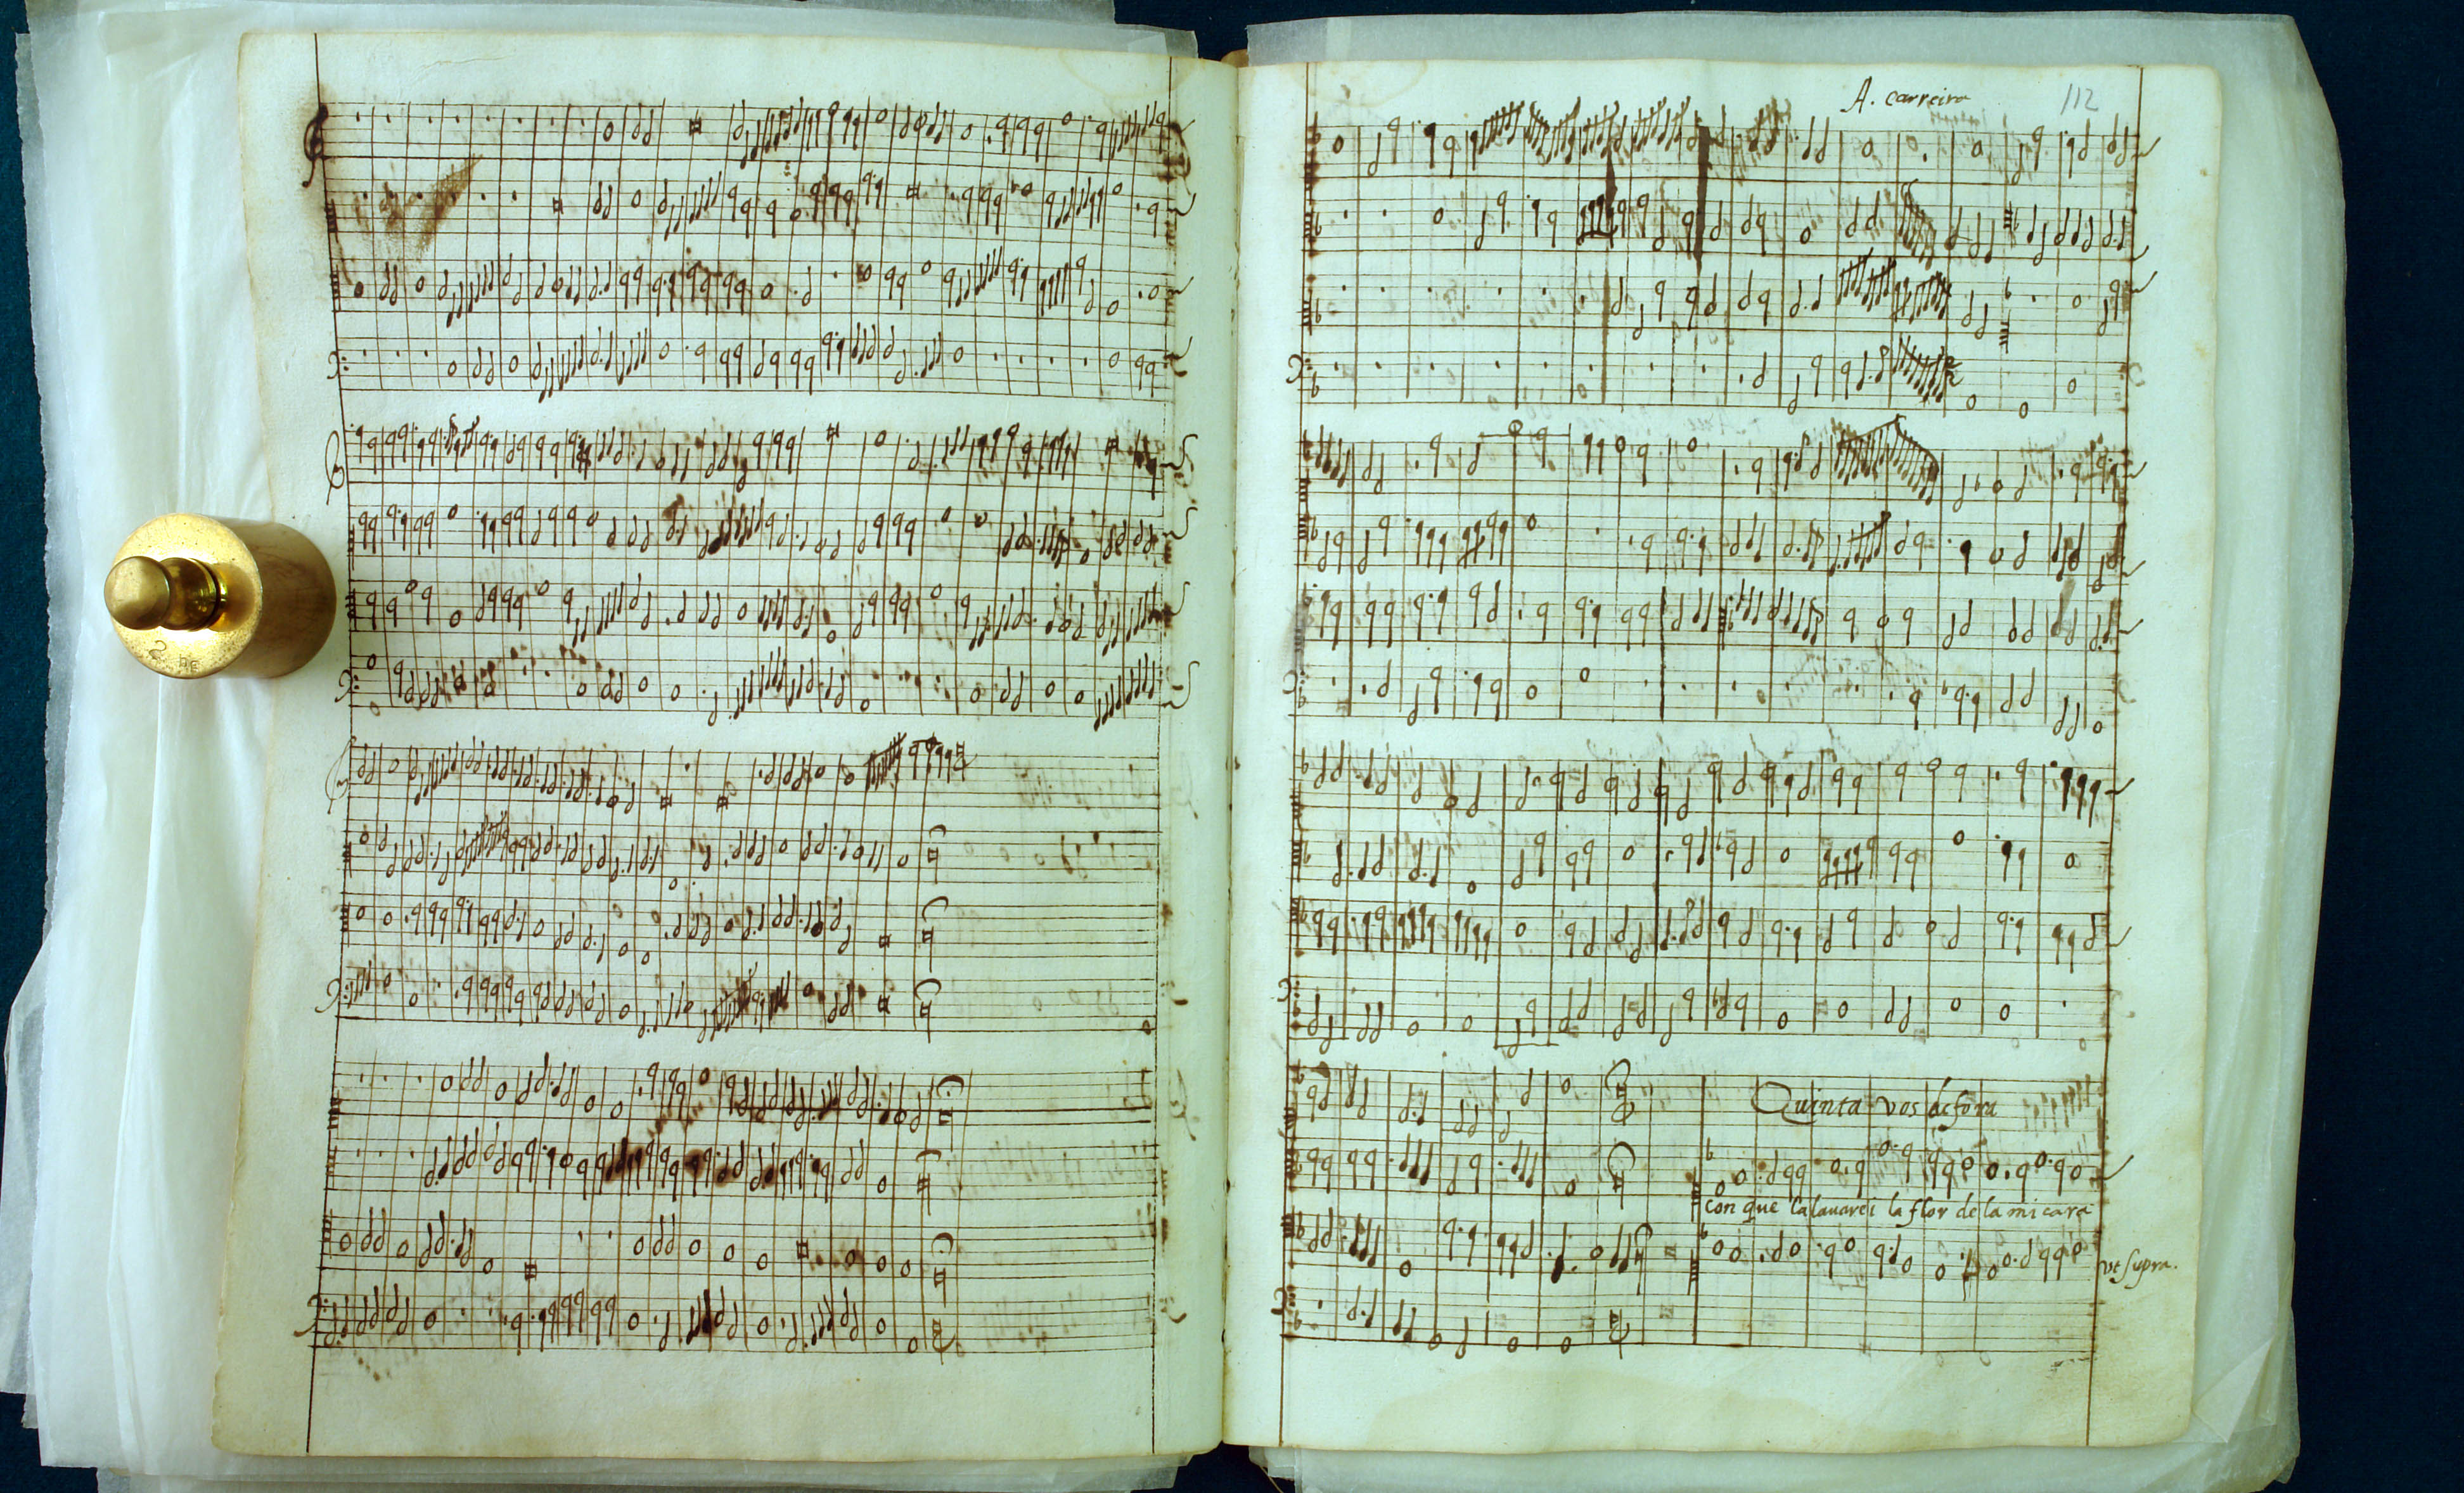 A. carreira
112
Quinta vos de fora
Con que la lavarei la flor de la mi cara
vt supra.